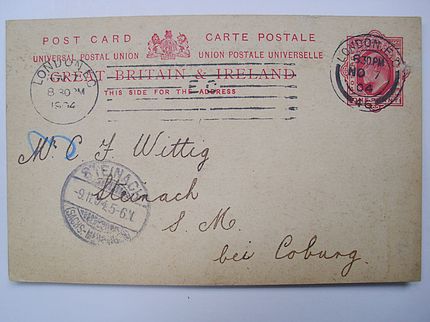 POST CARD CARTE POSTALE
UNIVERSAL POSTAL UNION UNION POSTALE UNIVERSELLE
GREAT BRITAIN & IRELAND
THIS SIDE FOR THE ADDRESS
LONDON. E.C
8.30PM
1904
LONDON. E.C.
8.30PM
NO
04
46
Mr. C F Wittig
Steinach
S. M.
bei Coburg.
STEINACH
-9.11.04.5-6.V.
(SACHS.-